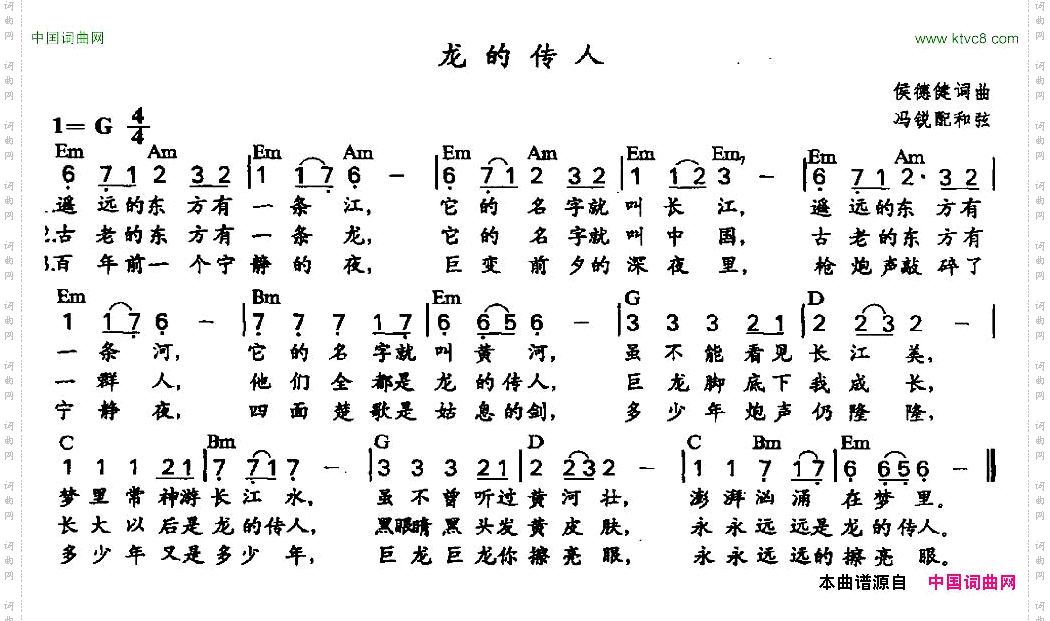 中国词曲网
www.ktvc8.com
龙的传人
侯德健词曲
冯锐配和弦
1=G 4/4
Em Am Em Am Em Am Em Em7 Em Am
6 7 1 2 3 2 | 1 1 7 6 - | 6 7 1 2 3 2 | 1 1 2 3 - | 6 7 1 2· 3 2 |
1.遥远的东方有一条江, 它的名字就叫长江, 遥远的东方有
2.古老的东方有一条龙, 它的名字就叫中国, 古老的东方有
3.百年前一个宁静的夜, 巨变前夕的深夜里, 枪炮声敲碎了
Em Bm Em G D
1 1 7 6 - | 7 7 7 1 7 | 6 6 5 6 - | 3 3 3 2 1 | 2 2 3 2 - |
一条河, 它的名字就叫黄河, 虽不能看见长江美,
一群人, 他们全都是龙的传人, 巨龙脚底下我成长,
宁静夜, 四面楚歌是姑息的剑, 多少年炮声仍隆隆,
C Bm G D C Bm Em
1 1 1 2 1 | 7 7 1 7 - | 3 3 3 2 1 | 2 2 3 2 - | 1 1 7 1 7 | 6 6 5 6 - ‖
梦里常神游长江水, 虽不曾听过黄河壮, 澎湃汹涌在梦里。
长大以后是龙的传人, 黑眼睛黑头发黄皮肤, 永永远远是龙的传人。
多少年又是多少年, 巨龙巨龙你擦亮眼, 永永远远的擦亮眼。
本曲谱源自 中国词曲网